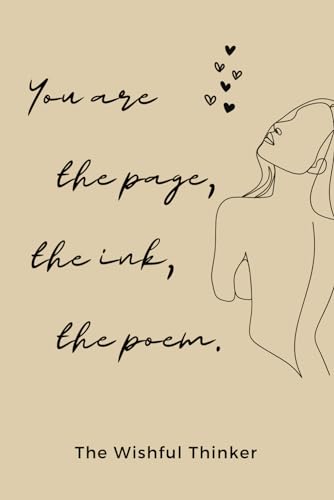 You are
the page,
the ink,
the poem.
The Wishful Thinker